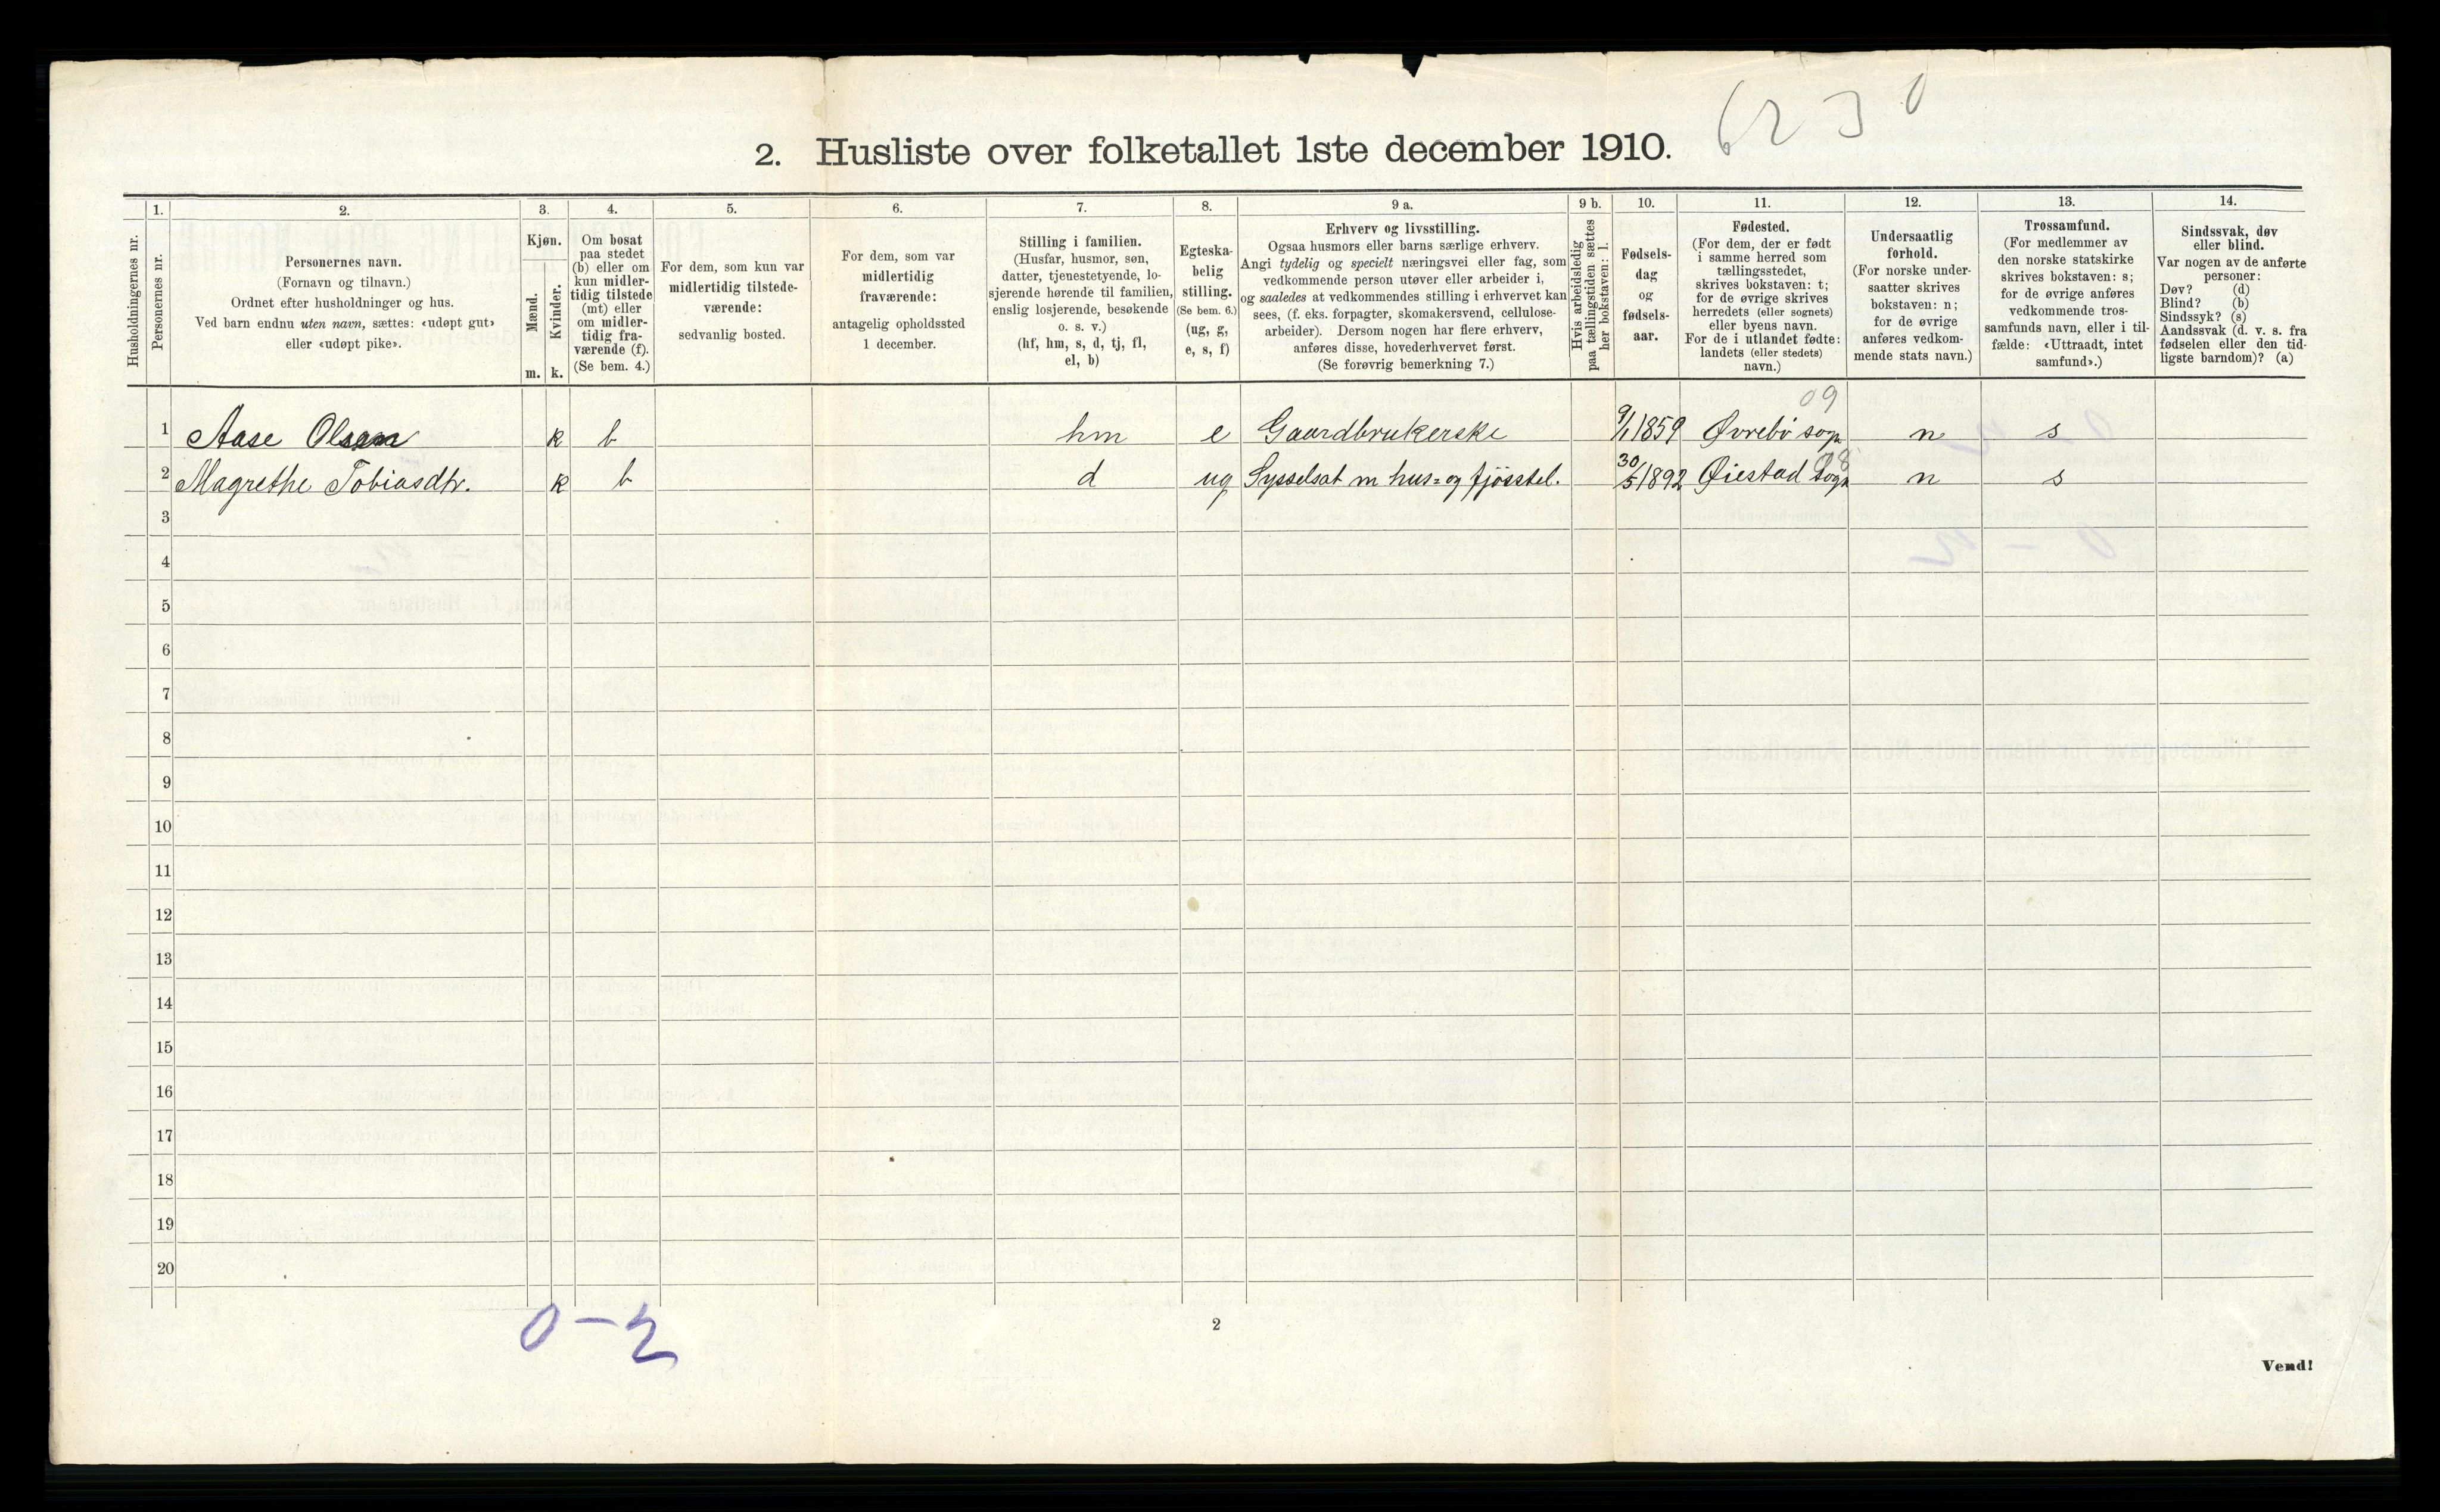 6230
2. Husliste over folketallet 1ste december 1910.
Husholdningernes nr.
1.
Personernes nr.
2.
Personernes navn.
(Fornavn og tilnavn.)
Ordnet efter husholdninger og hus.
Ved barn endnu uten navn, sættes: «udøpt gut»
eller «udøpt pike».
3.
Kjøn.
Mænd.
Kvinder.
m. k.
4.
Om bosat
paa stedet
(b) eller om
kun midler-
tidig tilstede
(mt) eller
om midler-
tidig fra-
værende (f).
(Se bem. 4.)
5.
For dem, som kun var
midlertidig tilstede-
værende:
sedvanlig bosted.
6.
For dem, som var
midlertidig
fraværende:
antagelig opholdssted
1 december.
7.
Stilling i familien.
(Husfar, husmor, søn,
datter, tjenestetyende, lo-
sjerende hørende til familien,
enslig losjerende, besøkende
o. s. v.)
(hf, hm, s, d, tj, fl,
el, b)
8.
Egteska-
belig
stilling.
(Se bem. 6.)
(ug, g,
e, s, f)
9 a.
Erhverv og livsstilling.
Ogsaa husmors eller barns særlige erhverv.
Angi tydelig og specielt næringsvei eller fag, som
vedkommende person utøver eller arbeider i,
og saaledes at vedkommendes stilling i erhvervet kan
sees, (f. eks. forpagter, skomakersvend, cellulose-
arbeider). Dersom nogen har flere erhverv,
anføres disse, hovederhvervet først.
(Se forøvrig bemerkning 7.)
9 b.
Hvis arbeidsledig
paa tællingstiden sættes
her bokstaven: l.
10.
Fødsels-
dag
og
fødsels-
aar.
11.
Fødested.
(For dem, der er født
i samme herred som
tællingsstedet,
skrives bokstaven: t;
for de øvrige skrives
herredets (eller sognets)
eller byens navn.
For de i utlandet fødte:
landets (eller stedets)
navn.)
12.
Undersaatlig
forhold.
(For norske under-
saatter skrives
bokstaven: n;
for de øvrige
anføres vedkom-
mende stats navn.)
13.
Trossamfund.
(For medlemmer av
den norske statskirke
skrives bokstaven: s;
for de øvrige anføres
vedkommende tros-
samfunds navn, eller i til-
fælde: «Uttraadt, intet
samfund».)
14.
Sindssvak, døv
eller blind.
Var nogen av de anførte
personer:
Døv? (d)
Blind? (b)
Sindssyk? (s)
Aandssvak (d. v. s. fra
fødselen eller den tid-
ligste barndom)? (a)
09
1 Aase Olsen k b hm e Gaardbrukerske 9/1 1859 Øvrebö sogn n s
2 Magrethe Tobiasdtr. k b d ug Sysselsat m hus= og fjösstel. 30/5 1892 Øiestad Sogn n s
3
4
5
6
7
8
9
10
11
12
13
14
15
16
17
18
19
20
0-2
2
Vend!